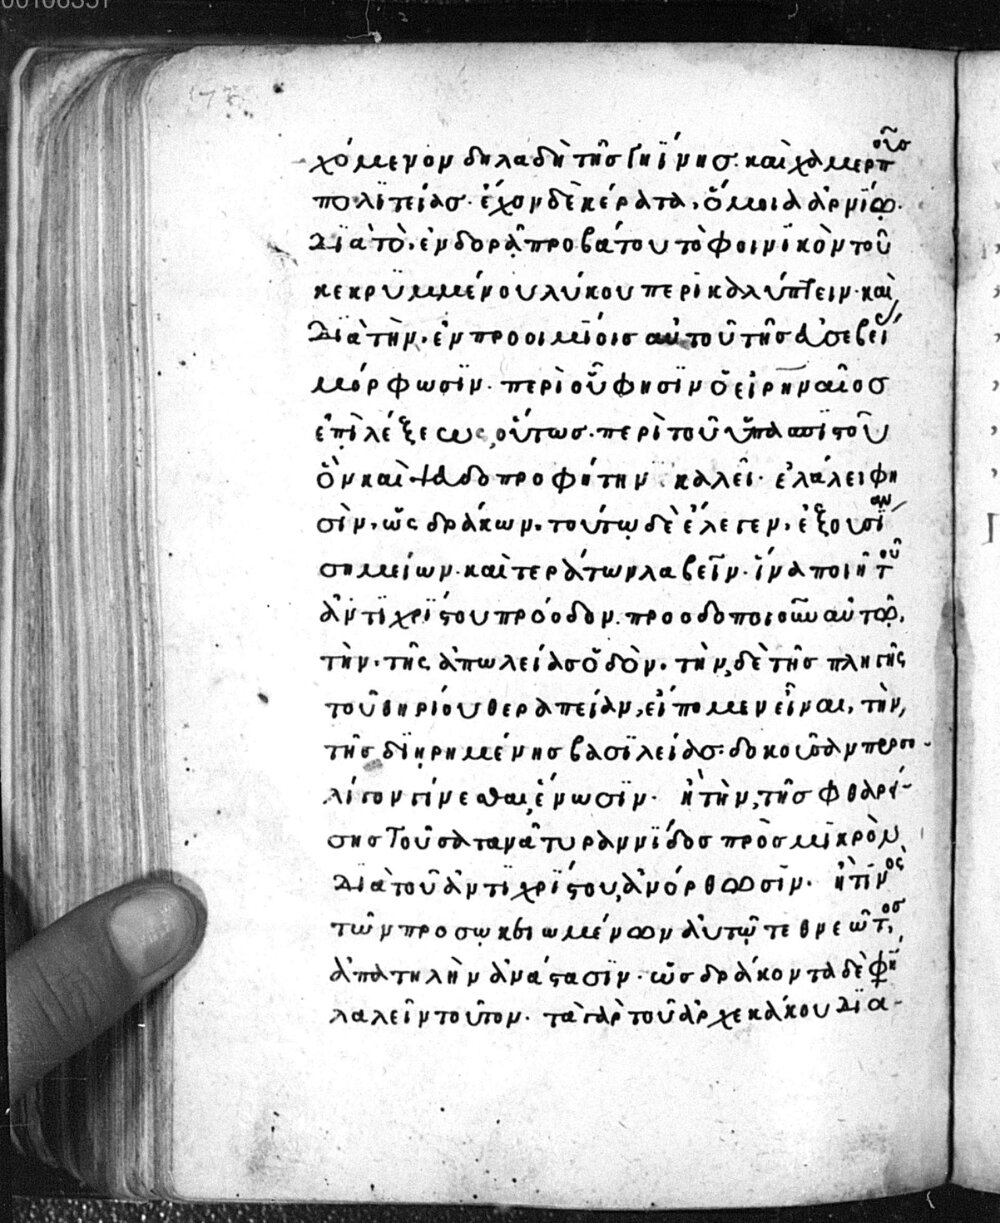 χόμενον δηλαδὴ τῆς γηΐνης· καὶ χαμερποῦς
πολϊτείας· ἔχον δὲ κέρατα, ὅμοια ἀρνίω·
διὰ τὸ, ἐν δορᾶ προβάτου τὸ φοινϊκὸν τοῦ
κεκρϋμμένου λύκου περικαλύπτειν· καὶ
διὰ τὴν, ἐν προοιμίοις αὐτοῦ τῆς εὐσεβεί
μόρφωσϊν· περὶ οὗ φησὶν ὁ εἰρηναῖος
ἐπὶ λέξεως, οὕτως· περὶ τοῦ ὑπασπϊστοῦ
ὃν καὶ ψαδοπροφήτην καλεῖ· ἐλάλει φη
σὶν, ὡς δράκων, τούτω δὲ ἔλεγεν, ἐξουσίαν
σημείων· καὶ τεράτων λαβεῖν· ἵνα ποιῆ τοῦ
ἀντϊχρίστου πρόοδον, προοδοποιοῦν αὐτῶ,
τὴν, τῆς ἀπωλείας ὁδὸν, τὴν, δὲ τῆς πληγῆς
τοῦ θηρίου θεραπείαν, εἴπομεν εἶναι, τὴν,
τῆς διηρημένης βασϊλείας· δοκοῦσαν προσο-
λίγον γίνεσθαι, ἕνωσϊν· ἢ τὴν, τῆς φθαρεί-
σης τοῦ σατανᾶ τυραννίδος πρὸς μϊκρὸν
διὰ τοῦ ἀντϊχρίστου, ἀνόρθωσϊν· ἢ τϊνὸς
τῶν προσωκειωμένων αὐτῶ τεθνεῶτος,
ἀπατηλὴν ἀνάστασϊν· ὡς δράκοντα δὲ φη
λαλεῖν τοῦτον· τὰ γὰρ τοῦ ἀρχεκάκου δια-